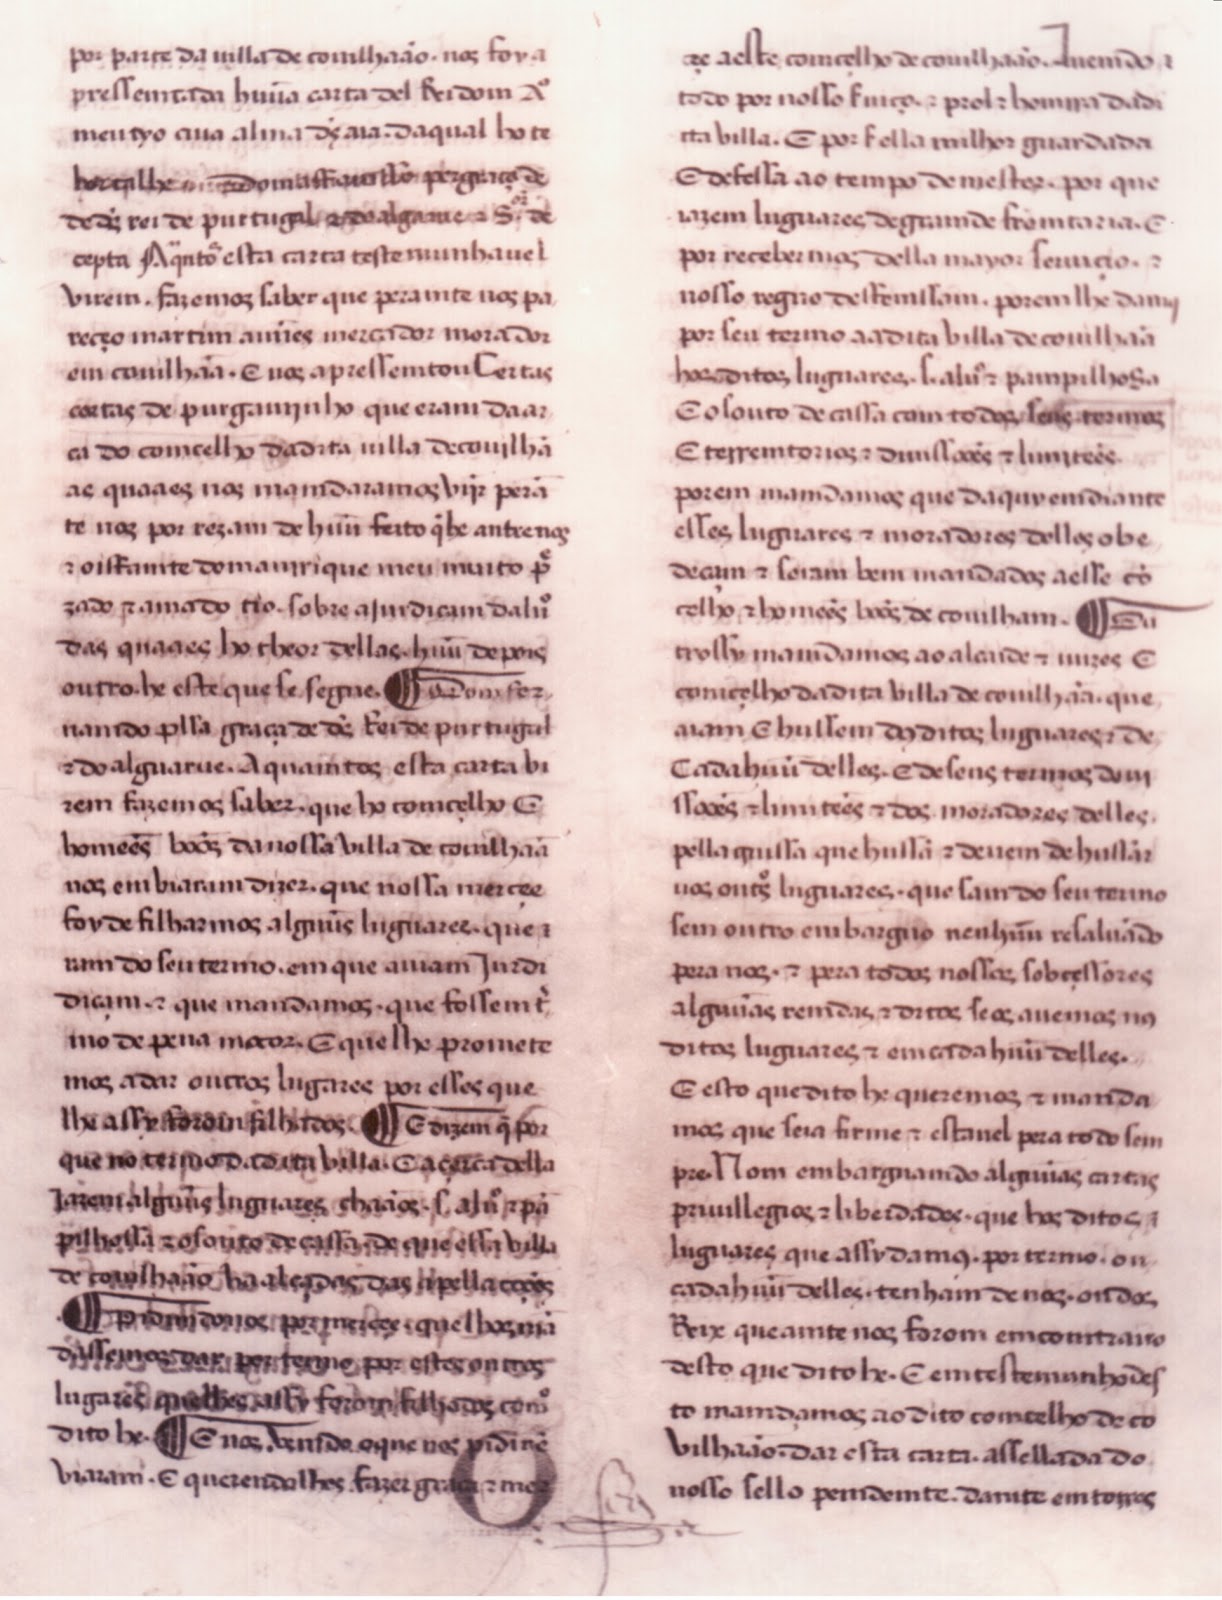 por parte da uilla de couilhaão. nos foy a
pressemtada huũa carta del Rei dom Aº
meu tyo cuia alma ds aia. da qual ho te
hor tal he dom affomsso per graça de
de ds rei de purtugal e do algarue e Sor de
cepta A qntos esta carta testemunhauel
virem. fazemos saber que peramte nos pa
reçeo martim annes mercador morador
em couilhaã. E nos apressemtou Certas
cartas de purgaminho que eram da ar
ca do comcelho da dita uilla de couilhã
as quaaes nos mamdaramos vijr perã
te nos por rezam de huũ feito q he antre nos
e o iffamte dom amrrique meu muito p
zado e amado tio. sobre a jurdiçam daluº
das quaaes ho theor dellas. huũ depois
outro. he este que se segue. Dom fer
namdo pella graça de ds Rei de purtugal
e do alguarue. A quamtos esta carta vi
rem fazemos saber. que ho comçelho E
homeẽs boõs da nossa villa de couilhaã
nos embiaram dizer. que nossa merçee
foy de filharmos alguũs luguares. que e
ram do seu termo. em que auiam Jurdi
diçam. e que mandamos. que fossem t
mo de pena maior. E que lhe promete
mos a dar outros lugares por esses que
lhe assy forom filhados. E dizem q por
que no termo da dita villa. E açerca della
Jazem alguũs luguares chaãos. s. aluº e pã
pilhossa e o souto de cassa. de que essa villa
de couilhaão ha alçadas das apellaçoões
E pidimdonos por merçee. que lhos mã
dassemos dar por termo por estes outros
lugares que lhes assy forom filhados comº
dito he. E nos vemdo o que nos pidir ẽ
viaram. E querendolhes fazer graça e mer
çe a este comçelho de couilhaão. Auemdo a
todo por nosso seruiço. e prol e homrra da di
ta villa. E por sella milhor guardada
E defessa ao tempo de mester. por que
iazem luguares de gramde fromtaria. E
por recebermos della mayor seruiço. e
nosso regno deffemssam. porem lhe damos
por seu termo aa dita villa de couilhaã
hos ditos luguares. s. aluº e pampilhosa
E o souto de cassa com todos seus termos
E terremtorios e diuissoões e limiteẽs.
porem mamdamos que daquy em diante
esses luguares e moradores delles obe
deçam e seiam bem mandados a esse cõ
celho e homeẽs boõs de couilham. Ou
trossy mamdamos ao alcaide e iuizes E
comçelho da dita villa de couilhãa. que
aiam E hussem dos ditos luguares e de
Cada huũ delles. E de seus termos diui
ssoões e limiteẽs e dos moradores delles.
pella guissa que hussã e deuem de hussar
nos outos luguares. que sam do seu termo
sem outro embarguo nenhuũ resaluãdo
pera nos. e pera todos nossos sobçessores
alguũas remdas e ditos se os auemos nos
ditos luguares e em cada huũ delles.
E esto que dito he queremos e manda
mos que seia firme e estauel pera todo sem
pre. Nom embarguamdo alguũas cartas
priuillegios e liberdades. que hos ditos
luguares que assy damos. por termo. ou
cada huũ delles. tenham de nos. ou dos
Reix que amte nos forom em comtrairo
desto que dito he. E em testemunho des
to mamdamos ao dito comçelho de co
vilhaão. dar esta carta. assellada do
nosso sello pemdemte. damte em torres